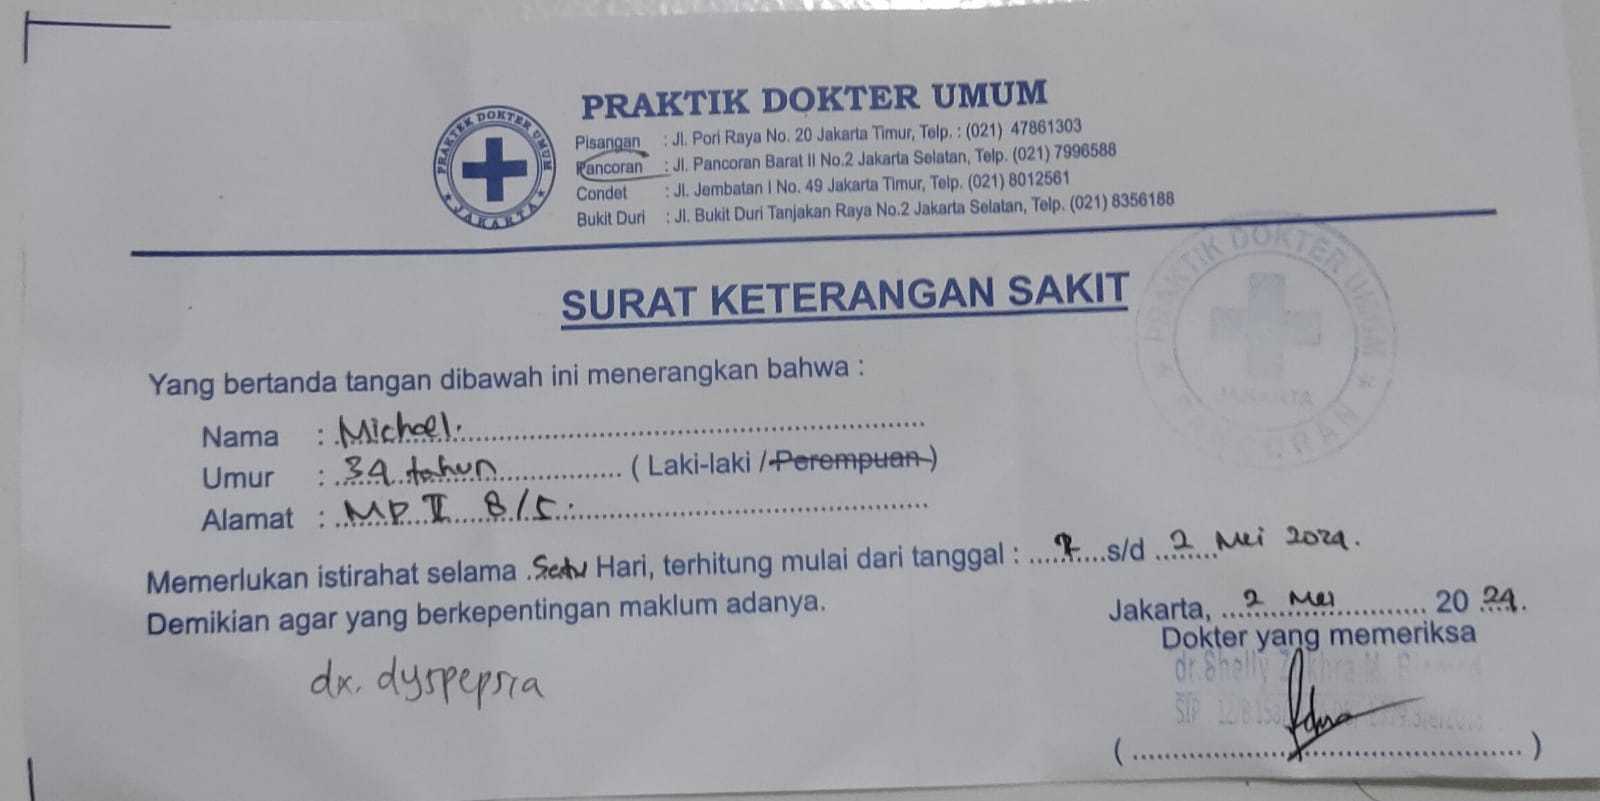 PRAKTIK DOKTER UMUM
PRAKTEK DOKTER UMUM
JAKARTA
Pisangan : Jl. Pori Raya No. 20 Jakarta Timur, Telp. : (021) 47861303
Pancoran : Jl. Pancoran Barat II No.2 Jakarta Selatan, Telp. (021) 7996588
Condet : Jl. Jembatan I No. 49 Jakarta Timur, Telp. (021) 8012561
Bukit Duri : Jl. Bukit Duri Tanjakan Raya No.2 Jakarta Selatan, Telp. (021) 8356188
PRAKTIK DOKTER UMUM
JAKARTA
PANCORAN
SURAT KETERANGAN SAKIT
Yang bertanda tangan dibawah ini menerangkan bahwa :
Nama : Michael.
Umur : 34 tahun ( Laki-laki / Perempuan )
Alamat : MP II 8/5.
Memerlukan istirahat selama Satu Hari, terhitung mulai dari tanggal : 2 s/d 2 Mei 2024.
Demikian agar yang berkepentingan maklum adanya.
Jakarta, 2 Mei 20 24.
Dokter yang memeriksa
dr. Shelly
SIP
dx. dyspepsia